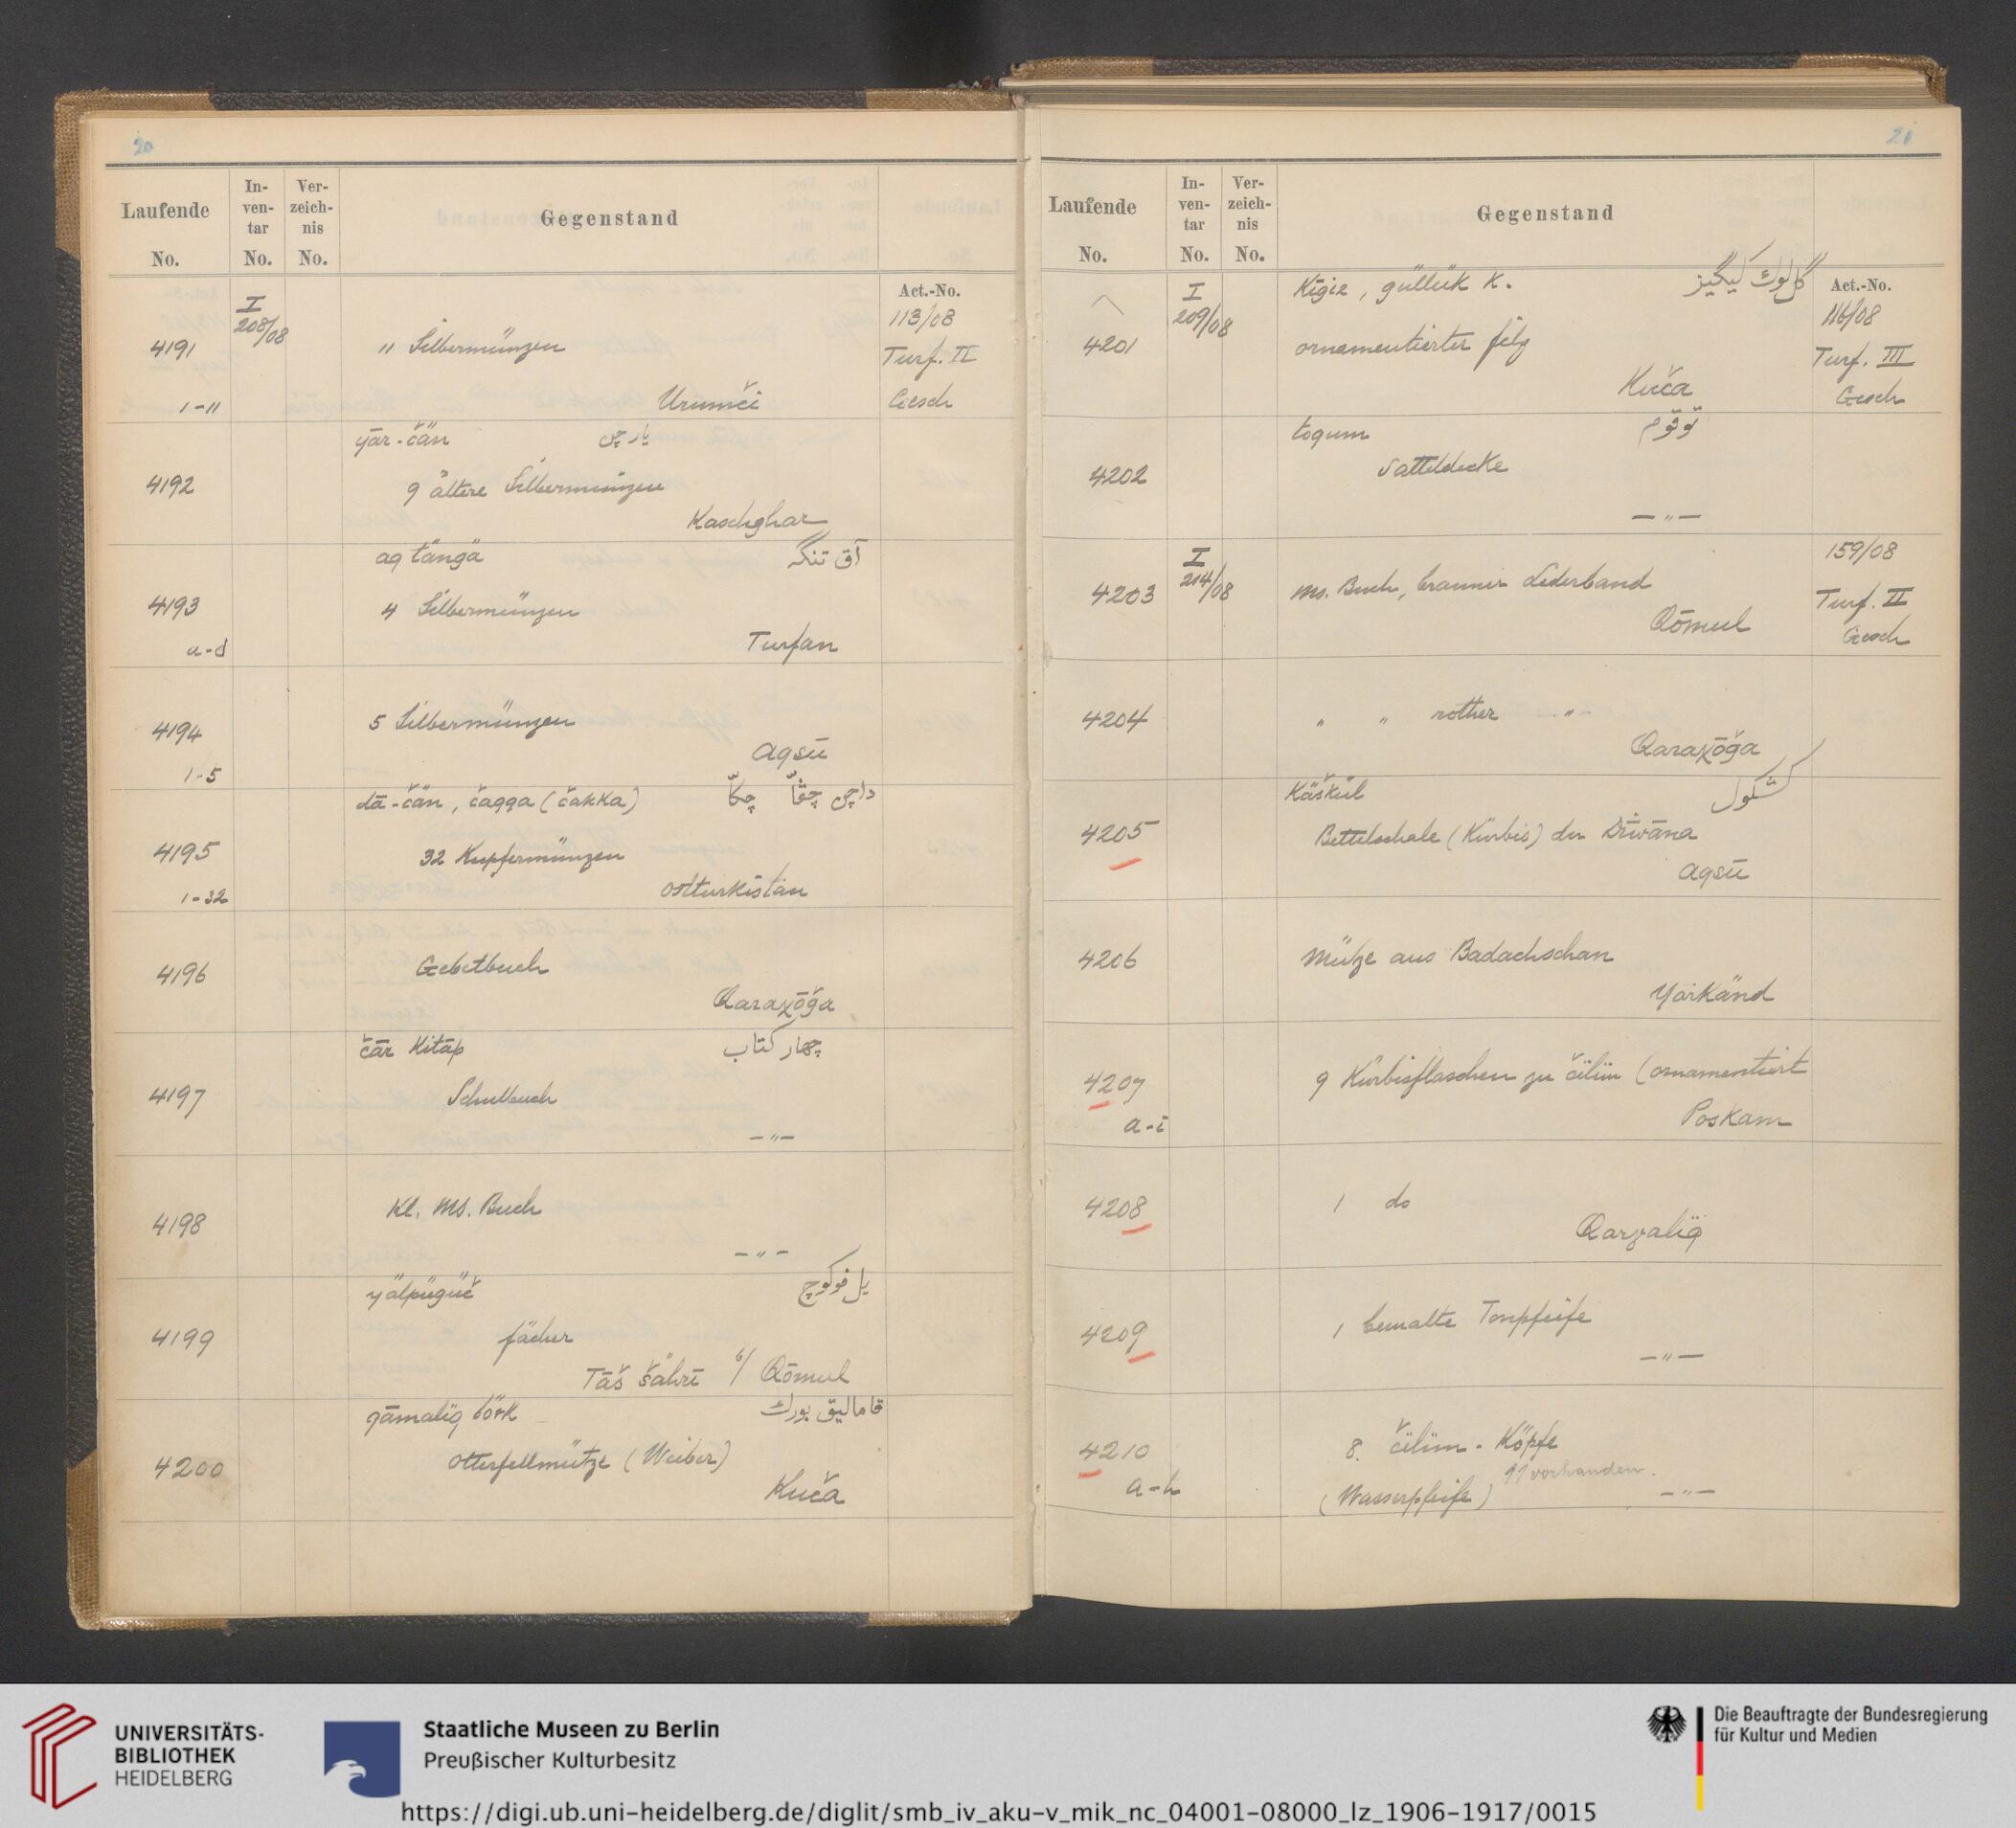 20
Laufende No. In-ven-tar No. Ver-zeich-nis No. Gegenstand
I 208/08 Act.-No. 113/08
4191 11 Silbermünzen Turf. II
1-11 Urumči Gesch
yār-čän یارچن
4192 9 ältere Silbermünzen
Kaschghar
aq tängä آق تنگه
4193 4 Silbermünzen
a-d Turfan
4194 5 Silbermünzen
1-5 Aqsū
dā-čän, čaqqa (čakka) داچن چقّا چکّا
4195 32 Kupfermünzen
1-32 Ostturkistan
4196 Gebetbuch
Qaraχōǧa
čār Kitāp چهار کتاب
4197 Schulbuch
-"-
4198 Kl. Ms. Buch
-"-
yälpügüč یل فوکوچ
4199 Fächer
Tāš šährī b/ Qōmul
qāmalïq börk قامالیق بورك
4200 Otterfellmütze (Weiber)
Kučā
21
Laufende No. In-ven-tar No. Ver-zeich-nis No. Gegenstand
I 209/08 Kīgiz, güllük K. گل لوك کیگیز Act.-No. 116/08
4201 ornamentierter Filz Turf. III
Kučā Gesch
toqum توقوم
4202 Satteldecke
-"-
I 214/08 159/08
4203 Ms. Buch, brauner Lederband Turf. II
Qōmul Gesch
4204 " " rother -"-
Qaraχōǧa
Käškül کشکول
4205 Bettelschale (Kürbis) der Dīwāna
Aqsū
4206 Mütze aus Badachschan
Yārkänd
4207 9 Kürbisflaschen zu čilim (ornamentiert
a-i Poskam
4208 1 do
Qarγalïq
4209 1 bemalte Tonpfeife
-"-
4210 8. čilim-Köpfe
11 vorhanden.
a-h (Wasserpfeife) -"-
UNIVERSITÄTS-
BIBLIOTHEK
HEIDELBERG
Staatliche Museen zu Berlin
Preußischer Kulturbesitz
Die Beauftragte der Bundesregierung
für Kultur und Medien
https://digi.ub.uni-heidelberg.de/diglit/smb_iv_aku-v_mik_nc_04001-08000_lz_1906-1917/0015